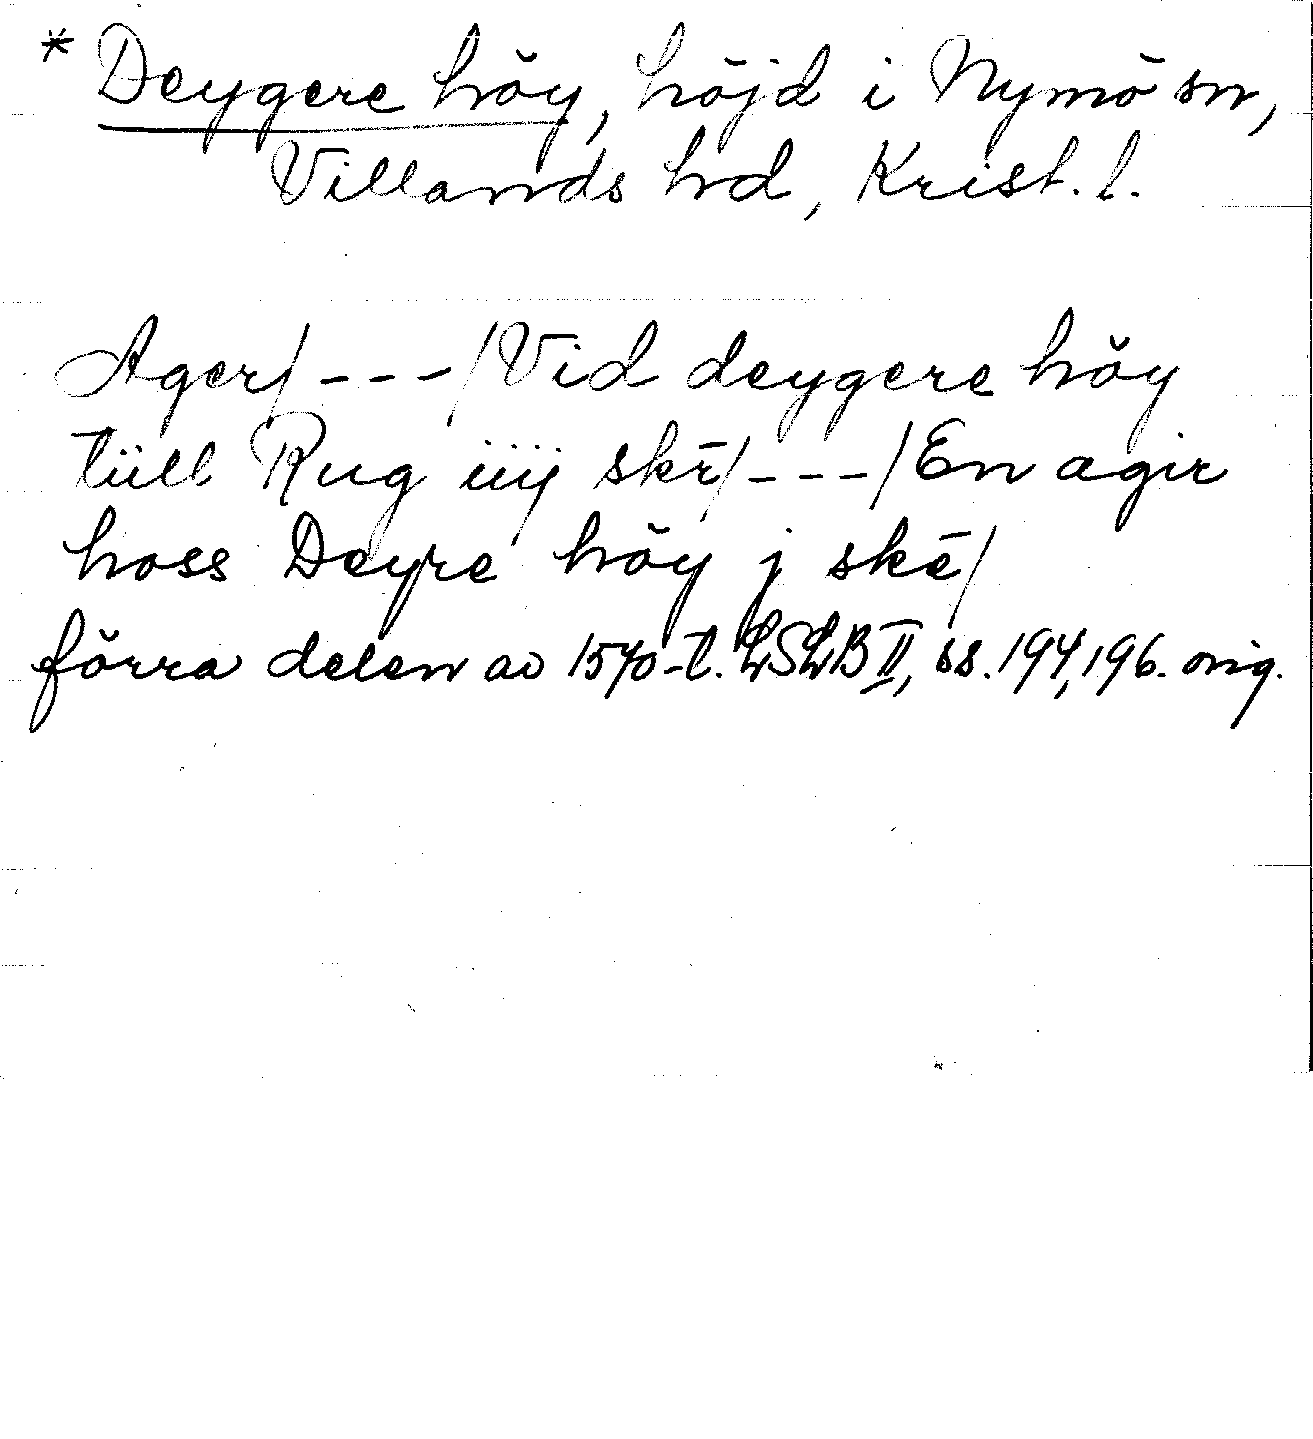 * Deygere höy, höjd i Nymö sn,
Villands hd, Krist. l.
Ager/---/Vid deygere höy
tüll Rug iiij skr̄/---/En agir
hoss Deyre höy j skē/
förra delen av 1570-t. LSLB II, ss. 194, 196. orig.